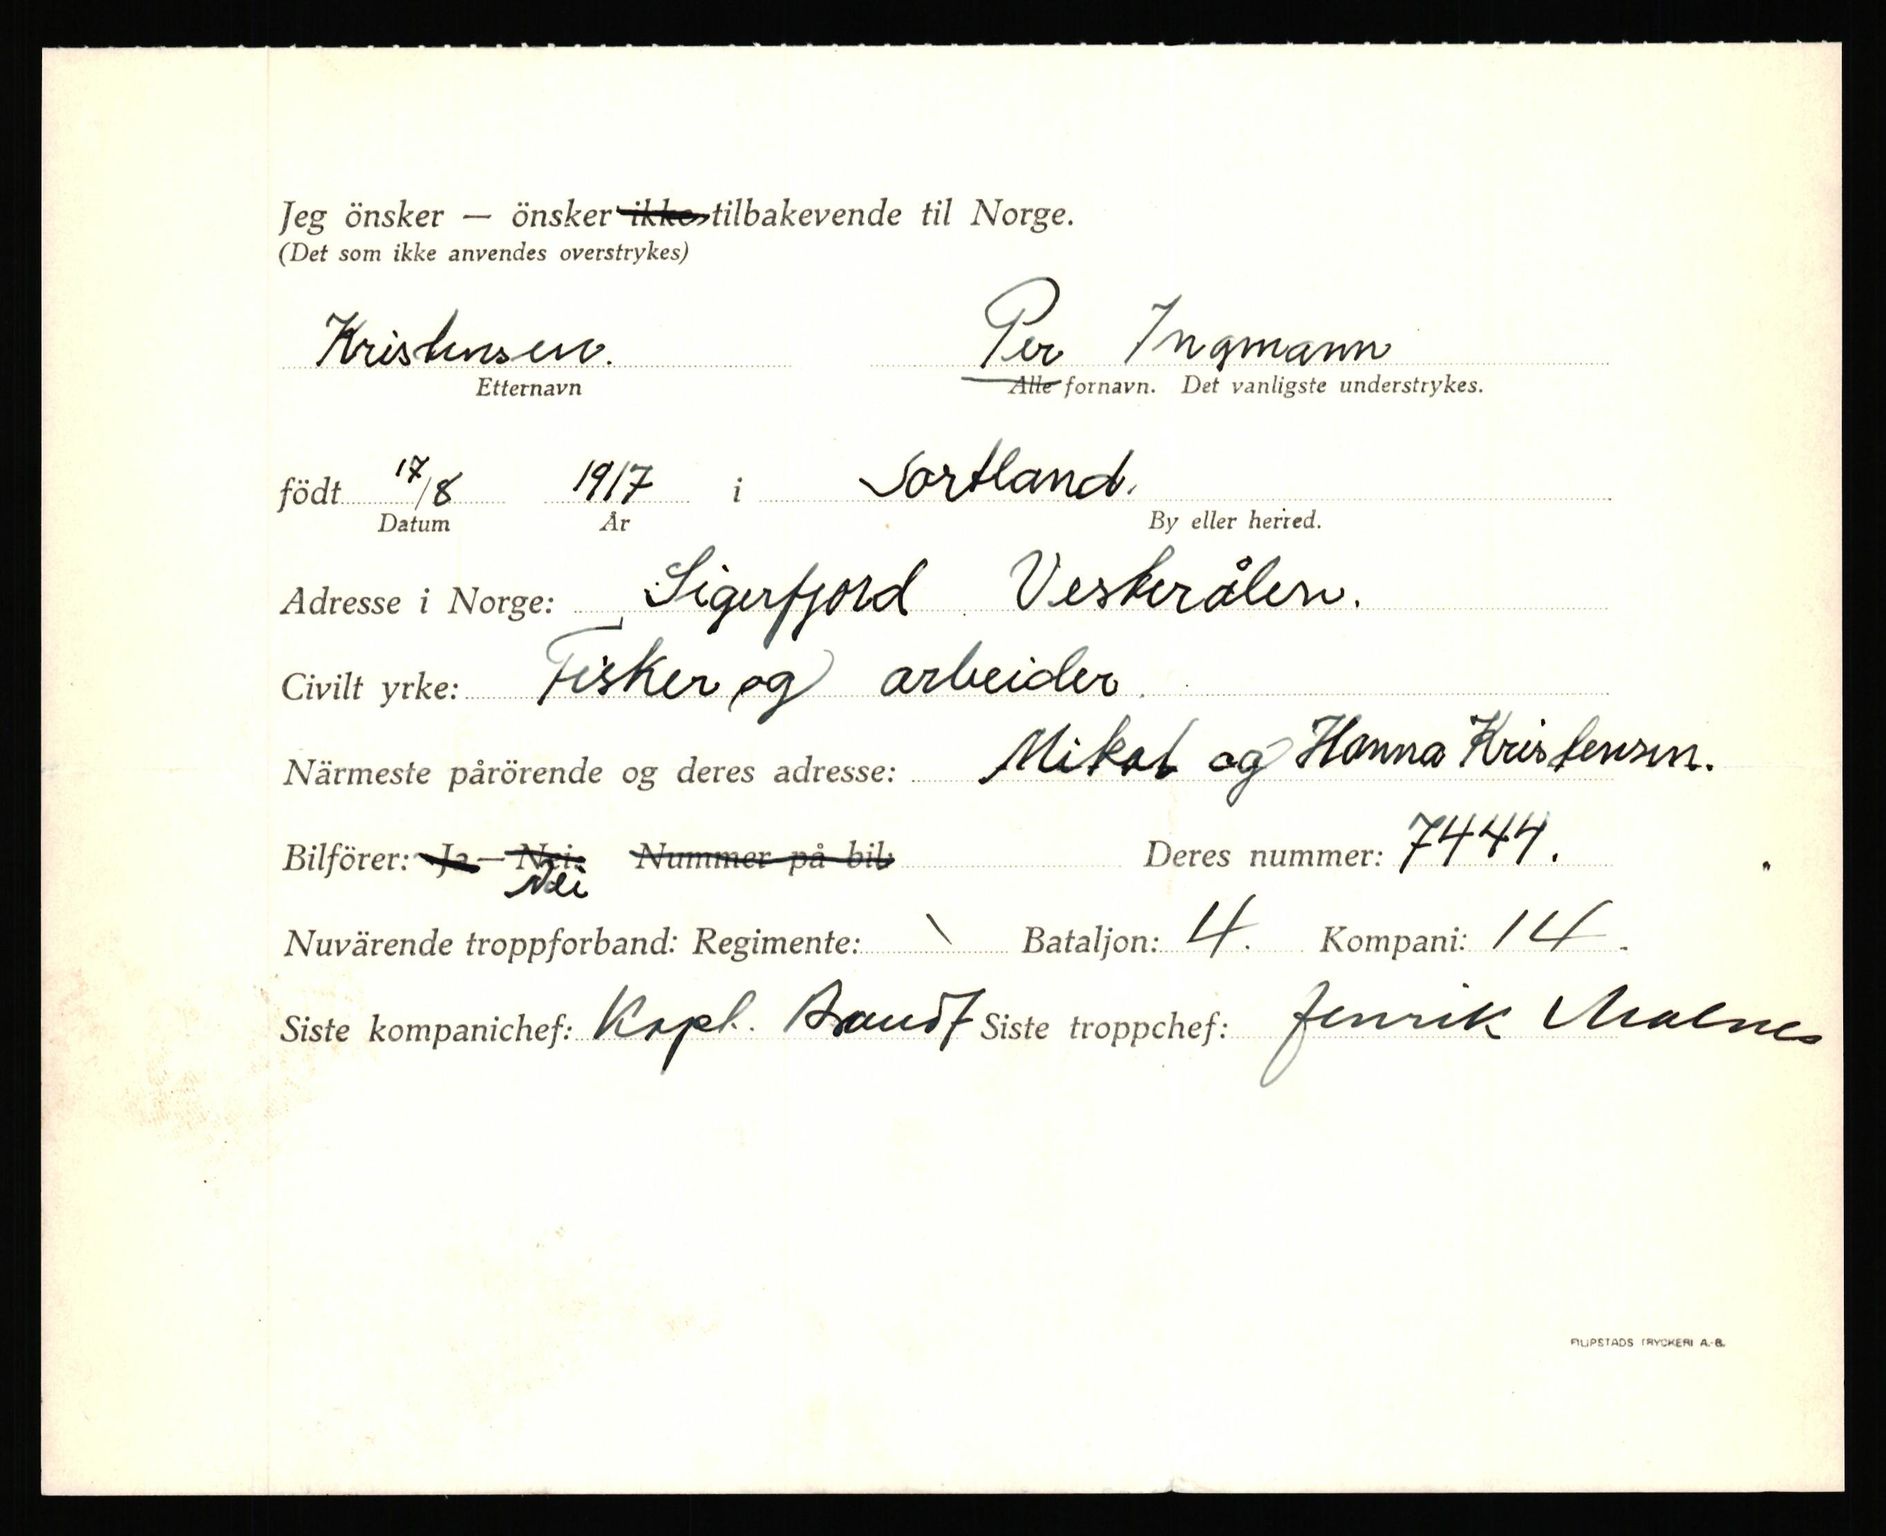 Jeg önsker — önsker ikke tilbakevende til Norge.
(Det som ikke anvendes overstrykes)
Kristensen. Per Ingmann
Etternavn Alle fornavn. Det vanligste understrykes.
födt 17/8 1917 i Sortland.
Datum År By eller herred.
Adresse i Norge: Sigerfjord Vesterålen.
Civilt yrke: Fisker og arbeider.
Närmeste pårörende og deres adresse: Mikal og Hanna Kristensen.
Bilförer: Ja — Nei. Nummer på bil: Deres nummer: 7444.
Nei
Nuvärende troppforband: Regimente: \ Bataljon: 4. Kompani: 14.
Siste kompanichef: Kapt. Siste troppchef: Jenrik
FILIPSTADS TRYCKERI A.-B.